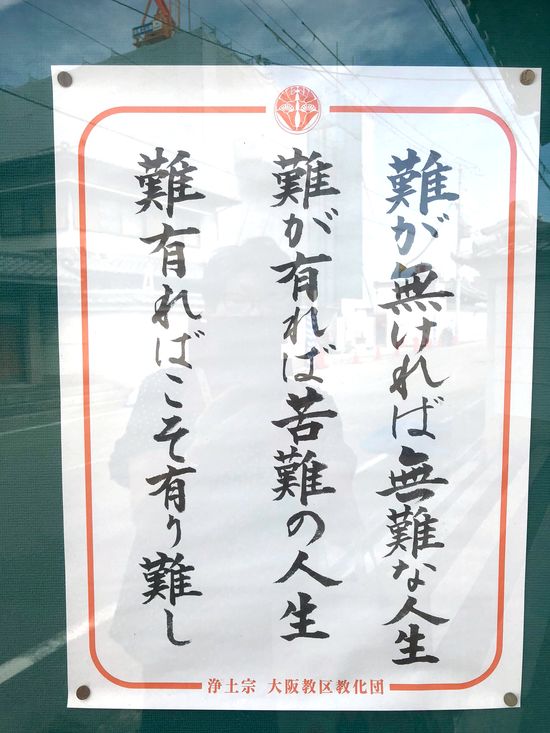 難が無ければ無難な人生
難が有れば苦難の人生
難有ればこそ有り難し
浄土宗 大阪教区教化団